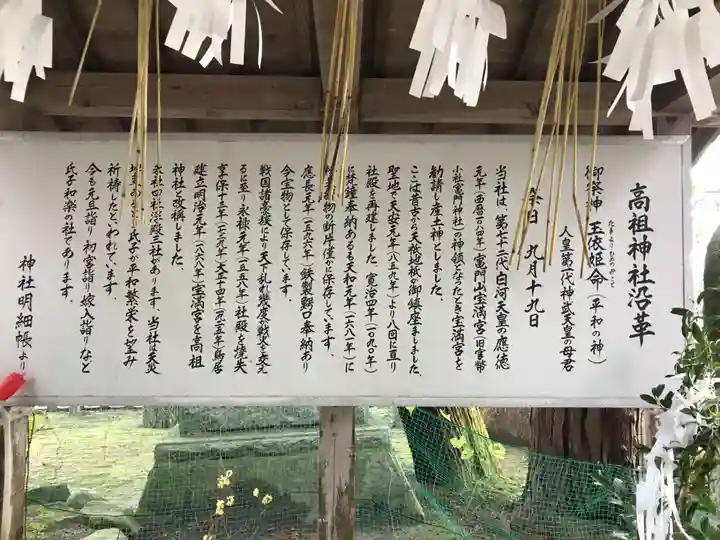 高祖神社沿革
御祭神 玉依姫命(平和の神)
たまよりひめのみこと
人皇第一代神武天皇の母君
祭日 九月十九日
当社は、第七十二代白河天皇の應徳
元年(西暦一〇八四年)竈門山宝満宮(旧官幣
小社竈門神社)の神領となったとき宝満宮を
勧請し産土神としました。
ここは昔古から天神地祇が御鎮座ましました、
聖地で天安元年(八五九年)より八回に亘り
社殿を再建しました。寛治四年(一〇九〇年)
に 鐘奉納あるも天和元年(一六八一年)に
物の断片僅かに保存しています。
應長元年(一五九六年)鉄製鰐口奉納あり
今宝物として保存しています。
戦国諸豪族により天下乱れ幾度か戦火を交え
るに至り永禄元年(一五五八年)社殿を焼失
享保十三年(一七二九年)大正十四年(一九二五年)鳥居
建立明治元年(一八六八年)宝満宮を高祖
神社と改稱しました。
永社の社 殿三社があります 当社は天災
地変 氏子が平和繁栄を望み
祈祷したといわれています。
今も元旦詣り 初宮詣り 嫁入詣りなど
氏子和楽の社であります。
神社明細帳より